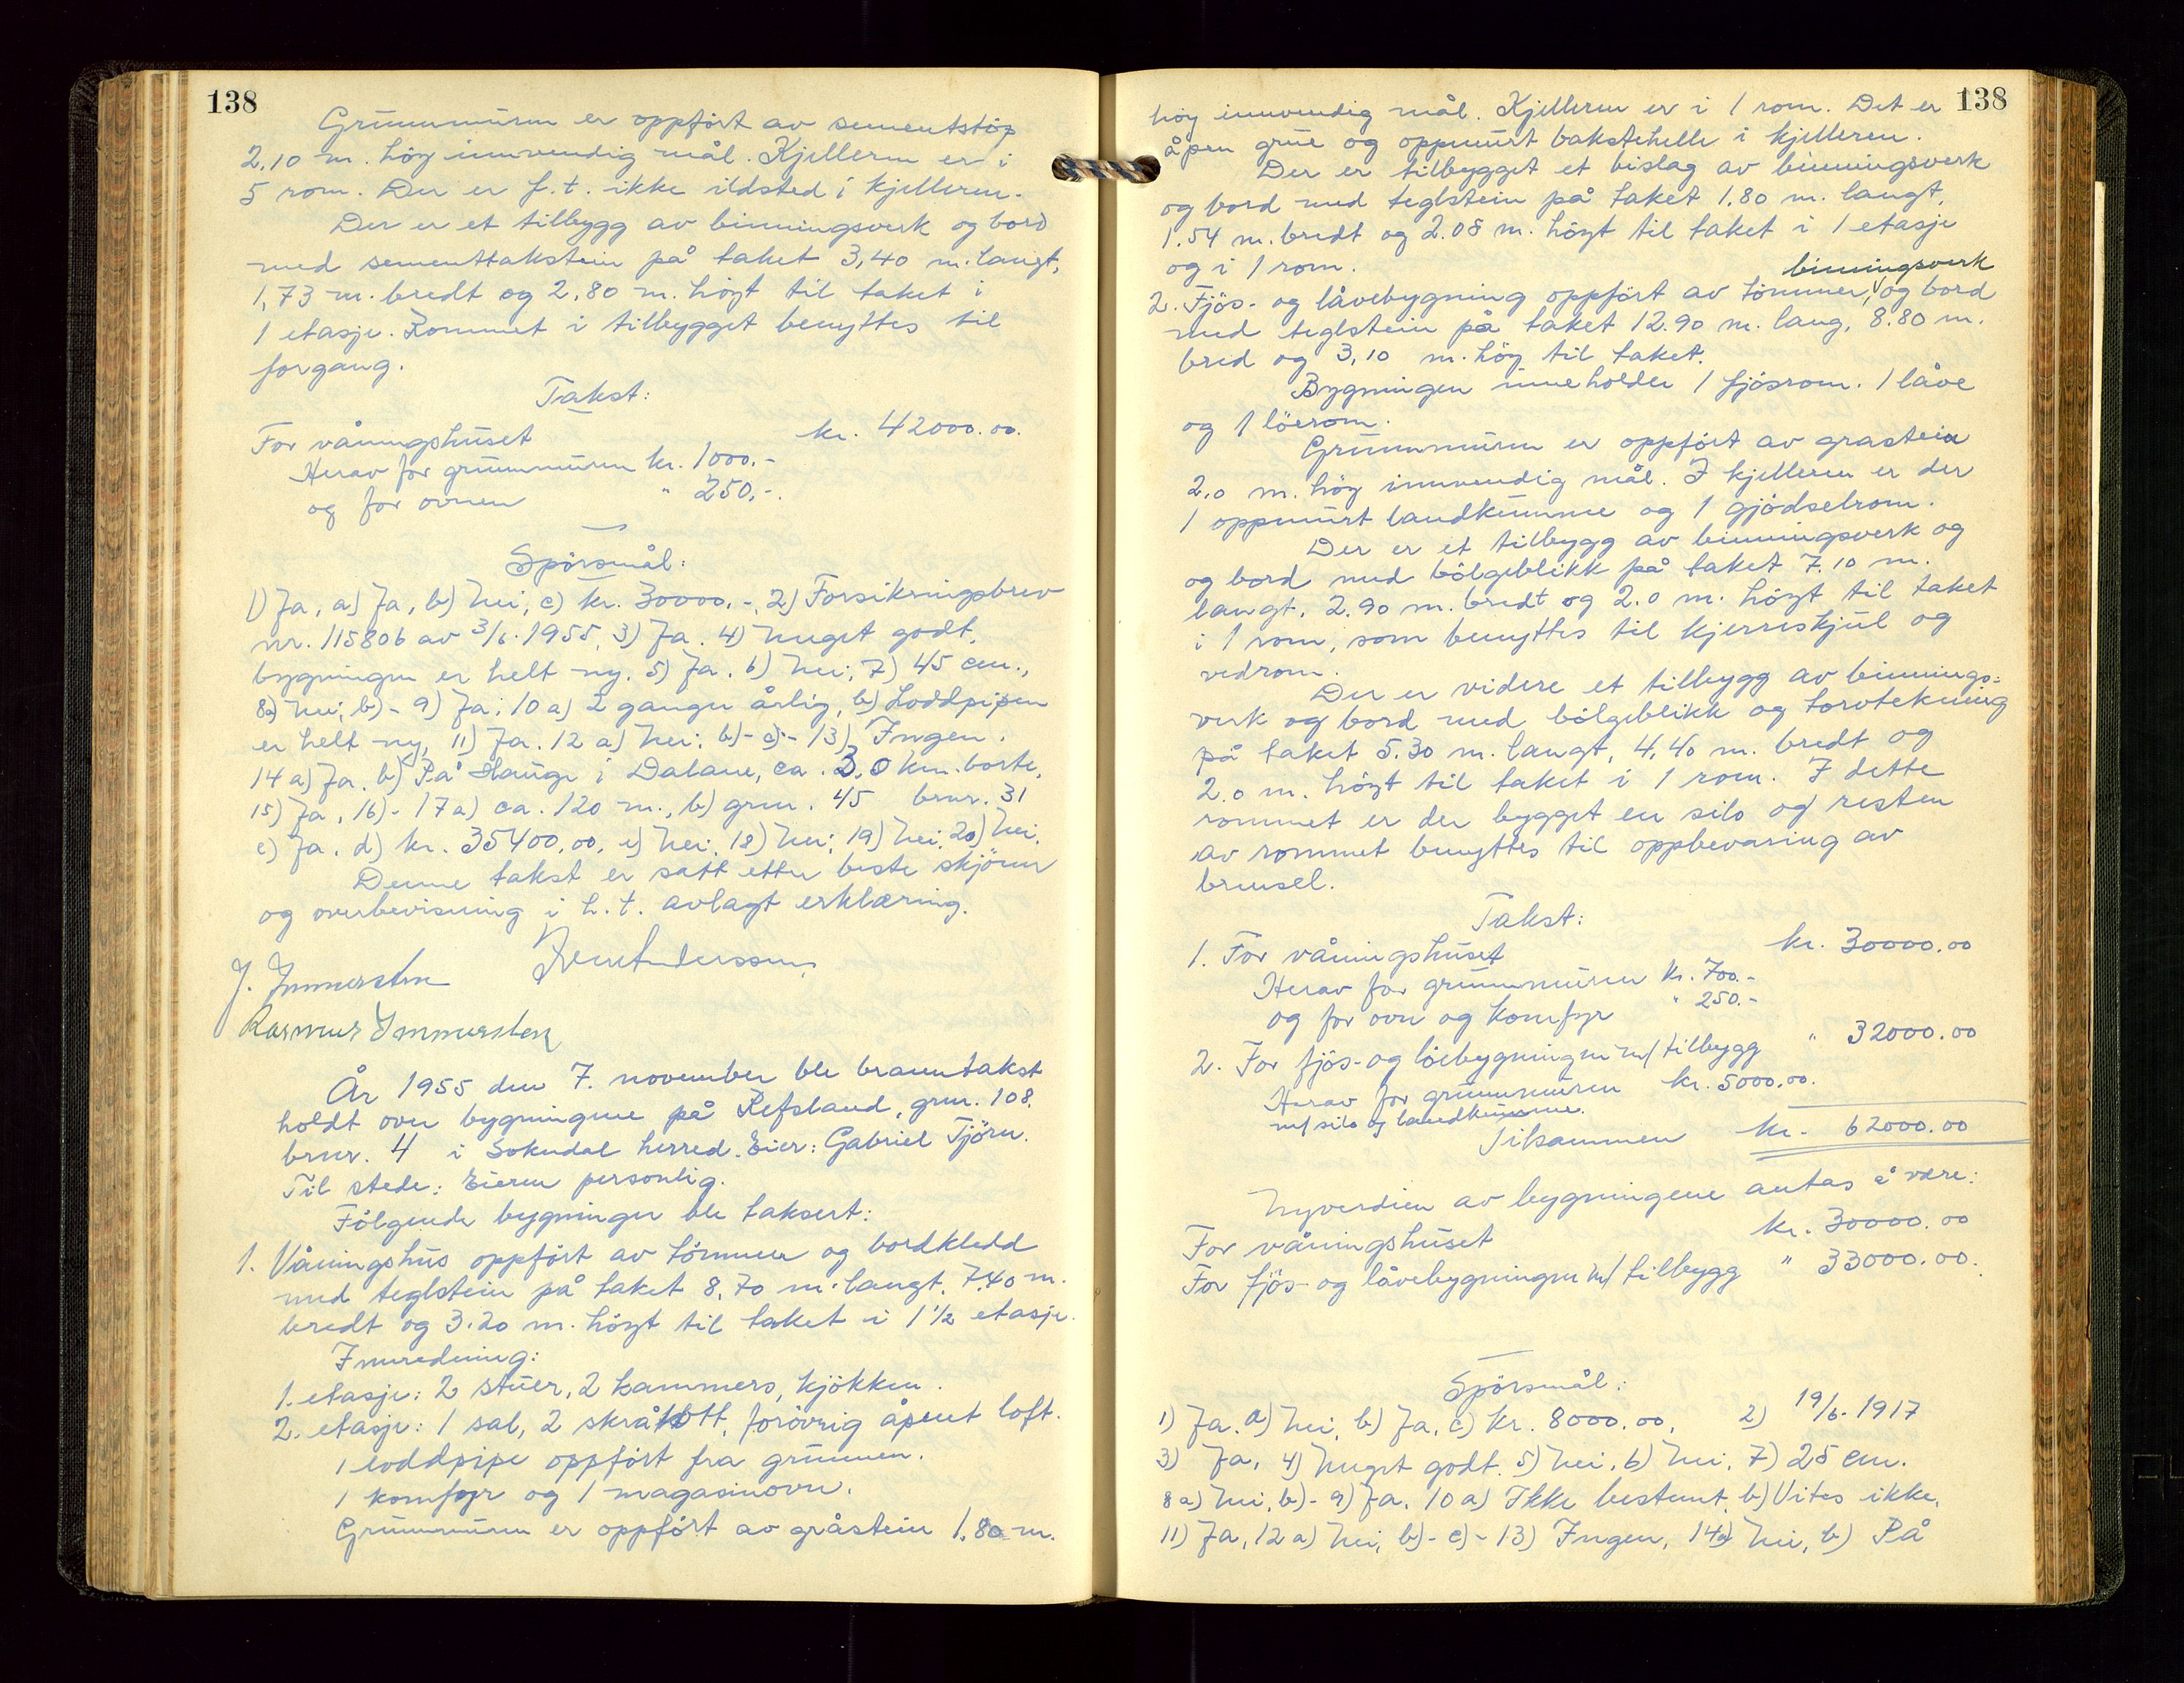 138
Grunnmuren er oppført av sementstøp
2,10 m. høg innvendig mål. Kjelleren er i
5 rom. Der er f.t. ikke ildsted i kjelleren.
Der er et tilbygg av binningsverk og bord
med sementtakstein på taket 3,40 m. langt,
1,73 m. bredt og 2,80 m. høgt til taket i
1 etasje. Rommet i tilbygget benyttes til
forgang.
Takst:
For våningshuset kr. 42000.00.
Herav for grunnmuren kr. 1000.-
og for ovnen " 250,-.
Spørsmål:
1) Ja, a) Ja, b) Nei, c) kr. 30000.-, 2) Forsikringsbrev
nr. 115806 av 3/6. 1955, 3) Ja. 4) Meget godt,
bygningen er helt ny. 5) Ja. 6) Nei, 7) 45 cm.,
8a) Nei, b)- 9) Ja; 10 a) 2 ganger årlig, b) Loddpipen
er helt ny, 11) Ja. 12 a) Nei; b)- c)- 13) Ingen.
14 a) Ja. b) På Hauge i Dalane, ca. 3,0 km. borte,
15) Ja, 16)- 17 a) ca. 120 m., b) gnr. 45 bnr. 31
c) Ja. d) kr. 35400,00, e) Nei, 18) Nei; 19) Nei, 20) Nei.
Denne takst er satt etter beste skjønn
og overbevisning i h.t. avlagt erklæring.
J. Immerstein
Rasmus Immerstein
År 1955 den 7. november ble branntakst
holdt over bygningene på Refsland, gnr. 108.
bnr. 4 i Sokndal herred. Eier: Gabriel Tjörn.
Til stede: Eieren personlig.
Følgende bygninger ble taksert:
1. Våningshus oppført av tømmer og bordkledd
med teglstein på taket 8,70 m. langt, 7,40 m.
bredt og 3.20 m. høgt til taket i 1 1/2 etasje.
Innredning:
1. etasje: 2 stuer, 2 kammers, kjøkken.
2. etasje: 1 sal, 2 skråtott, forøvrig åpent loft.
1 loddpipe oppført fra grunnen.
1 komfyr og 1 magasinovn.
Grunnmuren er oppført av gråstein 1,80 m.
138
høg innvendig mål. Kjelleren er i 1 rom. Det er
åpen grue og oppmurt bakstehelle i kjelleren.
Der er tilbygget et bislag av binningsverk
og bord med teglstein på taket 1.80 m. langt,
1.54 m. bredt og 2.08 m. høgt til taket i 1 etasje
og i 1 rom.
binningsverk
2. Fjös- og låvebygning oppført av tömmer, og bord
med teglstein på taket 12.90 m. lang, 8.80 m.
bred og 3,10 m. høg til taket.
Bygningen inneholder 1 fjösrom. 1 låve
og 1 löerom.
Grunnmuren er oppført av grastein
2,0 m. høg innvendig mål. I kjelleren er der
1 oppmurt landkumme og 1 gjødselrom.
Der er et tilbygg av binningsverk og
og bord med bölgeblikk på taket 7.10 m.
langt, 2.90 m. bredt og 2.0 m. høgt til taket
i 1 rom, som benyttes til kjerreskjul og
vedrom.
Der er videre et tilbygg av binnings-
verk og bord med bölgeblikk og torvtekning
på taket 5.30 m. langt, 4,40 m. bredt og
2.0 m. høgt til taket i 1 rom. I dette
rommet er der bygget en silo og resten
av rommet benyttes til oppbevaring av
brensel.
Takst:
1. For våningshuset kr. 30000.00
Herav for grunnmuren kr. 700.-
og for ovn og komfyr " 250.-
2. For fjös- og löebygningen m/ tilbygg " 32000.00
Herav for grunnmuren kr. 5000.00.
m/ silo og landkumme.
Tilsammen kr. 62000.00
Nyverdien av bygningene antas å være:
For våningshuset kr. 30000.00
For fjös- og låvebygningen m/ tilbygg " 33000.00.
Spørsmål:
1) Ja. a) Nei, b) Ja, c) kr. 8000.00, 2) 19/6. 1917
3) Ja, 4) Meget godt. 5) Nei. 6) Nei, 7) 25 cm.
8 a) Nei, b)- 9) Ja, 10 a) Ikke bestemt, b) Vites ikke,
11) Ja, 12 a) Nei, b)- c)- 13) Ingen, 14 a) Nei, b) På